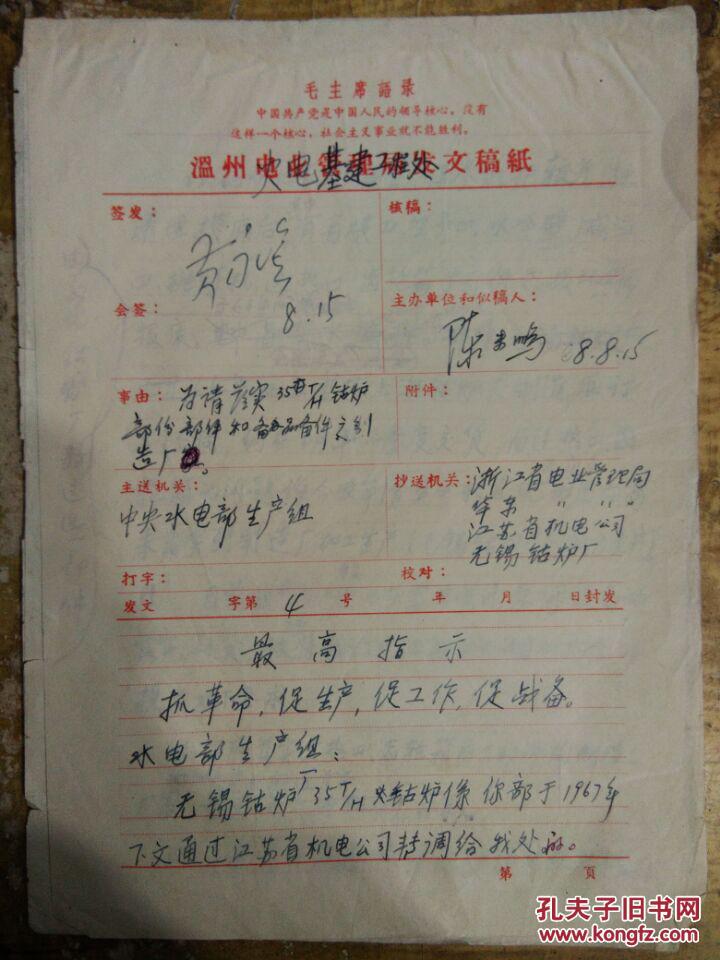 毛主席語录
中国共产党是中国人民的领导核心。没有
这样一个核心，社会主义事业就不能胜利。
溫州电业管理发文稿紙
火电基建工程处
签发：
核稿：
8.15
会签：
主办单位和似稿人：
陈 鸣 68.8.15
事由：为请落实35T/H钴炉
部份部件和备品备件之制
造厂。
附件：
主送机关：
中央水电部生产组
抄送机关：浙江省电业管理局
华东 〃 〃 〃
江苏省机电公司
无锡钴炉厂
打字：
校对：
发文 字第 4 号 年 月 日封发
最高指示
抓革命，促生产，促工作，促战备。
水电部生产组：
无锡钴炉厂35T/H 钴炉係你部于1967年
下文通过江苏省机电公司转调给我处的。
第 頁
孔夫子旧书网
www.kongfz.com